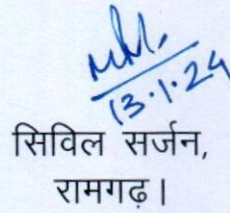 13.1.24
सिविल सर्जन,
रामगढ़।